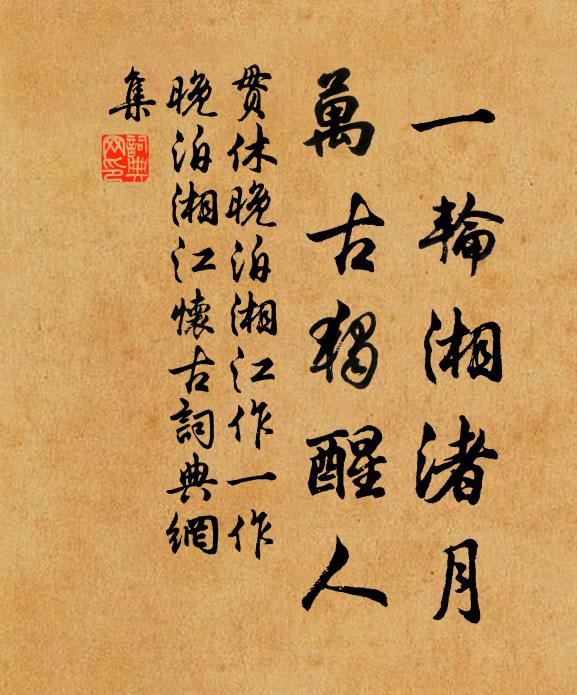 一輪湘渚月
萬古獨醒人
貫休晚泊湘江作一作
晚泊湘江懷古詞典網
集
詞典網印